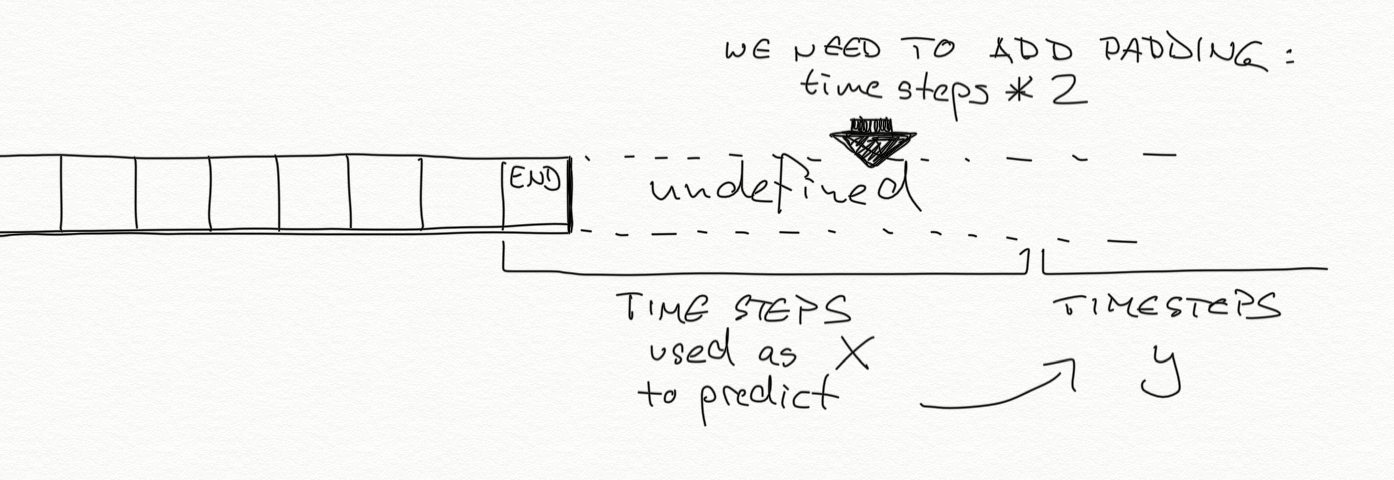 WE NEED TO ADD PADDING:
time steps * 2
END
undefined
TIME STEPS
used as X
to predict
TIMESTEPS
y